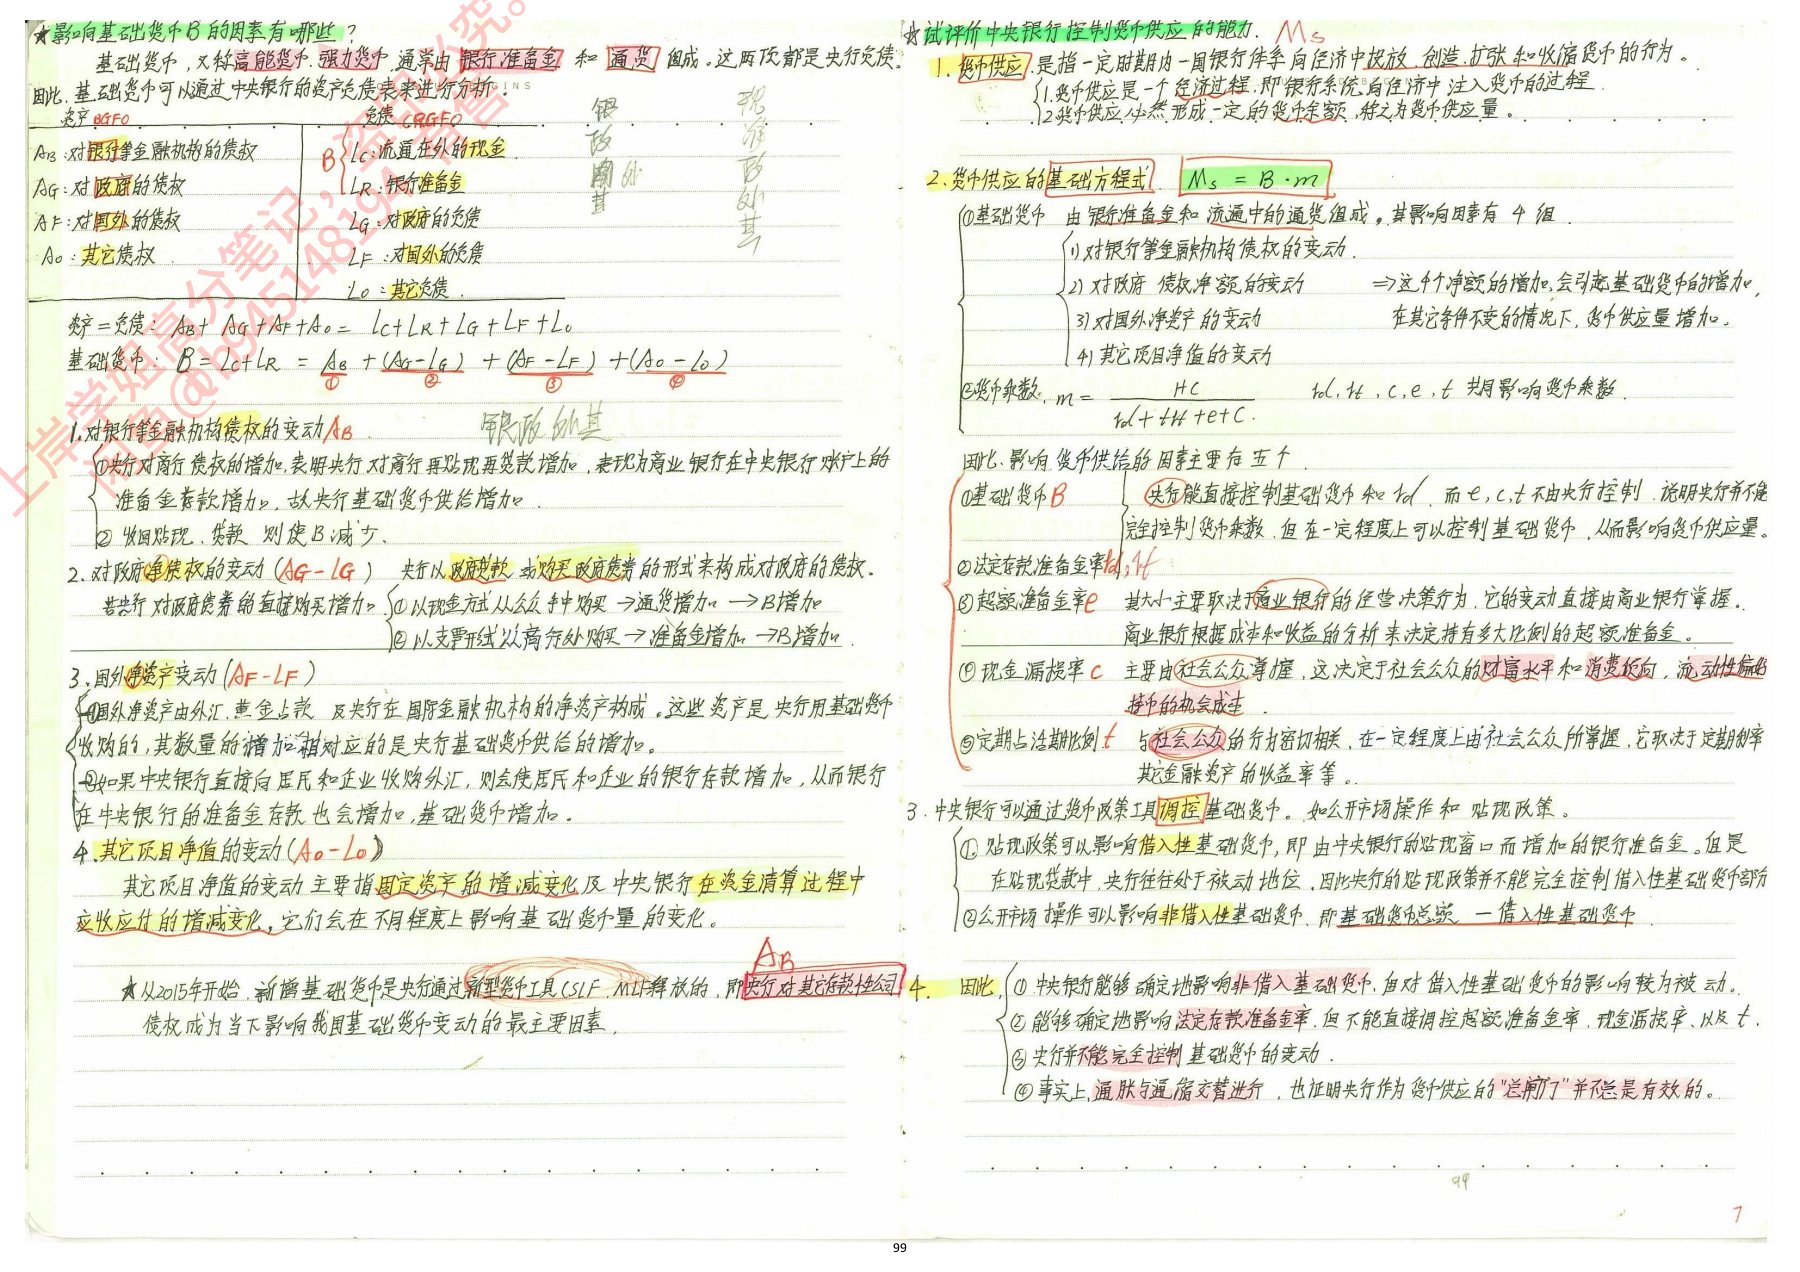 ★影响基础货币B的因素有哪些?
基础货币,又称高能货币、强力货币,通常由 银行准备金 和 通货 组成。这两项都是央行负债。
因此,基础货币可以通过中央银行的资产负债表来进行分析。
资产 BGFO 负债 CRGFO
AB:对银行等金融机构的债权
AG:对政府的债权
AF:对国外的债权
AO:其它债权
B
LC:流通在外的现金
LR:银行准备金
LG:对政府的负债
LF:对国外的负债
LO:其它负债.
银
政
国外
其
现
准
政
外
其
资产=负债: AB+AG+AF+AO = LC+LR+LG+LF+LO
基础货币: B=LC+LR = AB + (AG-LG) + (AF-LF) + (AO-LO)
① ② ③ ④
银政外其
1.对银行等金融机构债权的变动AB
①央行对商行债权的增加,表明央行对商行再贴现再贷款增加,表现为商业银行在中央银行账户上的
准备金存款增加,故央行基础货币供给增加.
② 收回贴现、贷款 则使B减少.
2.对政府净债权的变动(AG-LG) 央行以政府贷款 或购买政府债券的形式来构成对政府的债权.
若央行对政府债券的直接购买增加
① 以现金方式从公众手中购买→通货增加→B增加
② 以支票形式从商行处购买→准备金增加→B增加.
3.国外净资产变动(AF-LF)
①国外净资产由外汇、黄金占款 及央行在国际金融机构的净资产构成。这些资产是央行用基础货币
收购的,其数量的增加相对应的是央行基础货币供给的增加。
②如果中央银行直接向居民和企业收购外汇,则会使居民和企业的银行存款增加,从而银行
在中央银行的准备金存款也会增加,基础货币增加。
4.其它项目净值的变动(AO-LO)
其它项目净值的变动主要指固定资产的增减变化及中央银行在资金清算过程中
应收应付的增减变化,它们会在不同程度上影响基础货币量的变化。
AB
★从2015年开始,新增基础货币是央行通过新型货币工具(SLF、MLF释放的,即央行对其它存款性公司
债权成为当下影响我国基础货币变动的最主要因素.
★试评价中央银行控制货币供应的能力. Ms
1.货币供应,是指一定时期内一国银行体系向经济中投放、创造、扩张和收缩货币的行为。
1.货币供应是一个经济过程,即银行系统向经济中注入货币的过程.
2.货币供应必然形成一定的货币余额,称之为货币供应量。
2.货币供应的基础方程式 Ms = B·m
①基础货币 由银行准备金和流通中的通货组成。其影响因素有4组.
1)对银行等金融机构债权的变动.
2)对政府 债权净额的变动 ⇒这4个净额的增加,会引起基础货币的增加,
3)对国外净资产的变动 在其它条件不变的情况下,货币供应量增加。
4)其它项目净值的变动
②货币乘数. m = 1+C / rd+t·rt+e+C. rd,rt,c,e,t 共同影响货币乘数.
因此,影响货币供给的因素主要有五个.
①基础货币B 央行能直接控制基础货币和rd,而e,c,t不由央行控制.说明央行并不能
完全控制货币乘数.但在一定程度上可以控制基础货币,从而影响货币供应量。
②法定存款准备金率rd,rt
③超额准备金率e 其大小主要取决于商业银行的经营决策行为,它的变动直接由商业银行掌握。
商业银行根据成本和收益的分析来决定持有多大比例的超额准备金。
④现金漏损率c 主要由社会公众掌握,这决定于社会公众的财富水平和消费倾向,流动性偏好
持币的机会成本.
⑤定期占活期比例t 与社会公众的行为密切相关,在一定程度上由社会公众所掌握,它取决于定期利率
其它金融资产的收益率等。
3.中央银行可以通过货币政策工具调控基础货币。如公开市场操作和 贴现政策。
① 贴现政策可以影响借入性基础货币,即由中央银行的贴现窗口而增加的银行准备金。但是
在贴现贷款中,央行往往处于被动地位,因此央行的贴现政策并不能完全控制借入性基础货币部分
②公开市场操作可以影响非借入性基础货币,即基础货币总额 — 借入性基础货币
4. 因此,
① 中央银行能够确定地影响非借入基础货币,但对借入性基础货币的影响较为被动。
② 能够确定地影响法定存款准备金率,但不能直接调控超额准备金率,现金漏损率、以及t.
③ 央行并不能完全控制基础货币的变动.
④事实上,通胀与通缩交替进行,也证明央行作为货币供应的"总闸门"并不总是有效的。
99
7
99
上岸学姐高分笔记,盗印必究。
闲鱼@bg94514819